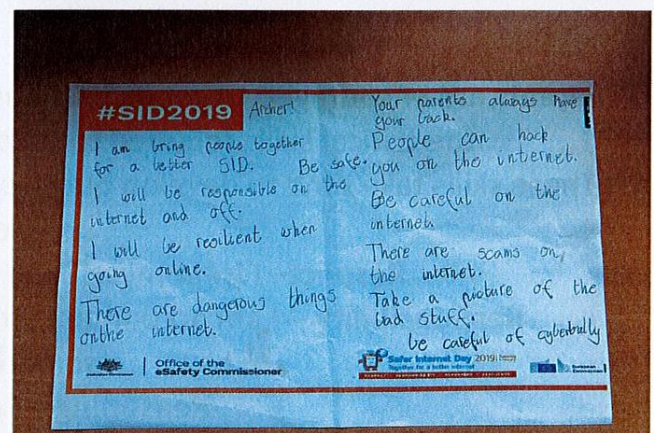 #SID2019 Archer!
I am bring people together
for a better SID. Be safe.
I will be responsible on the
internet and off.
I will be resilient when
going online.
There are dangerous things
onthe internet.
Your parents always have
your back.
People can hack
you on the internet.
Be careful on the
internet.
There are scams on
the internet.
Take a picture of the
bad stuff.
be careful of cyberbully
Office of the
eSafety Commissioner
Safer Internet Day 2019
Together for a better internet
European
Commission